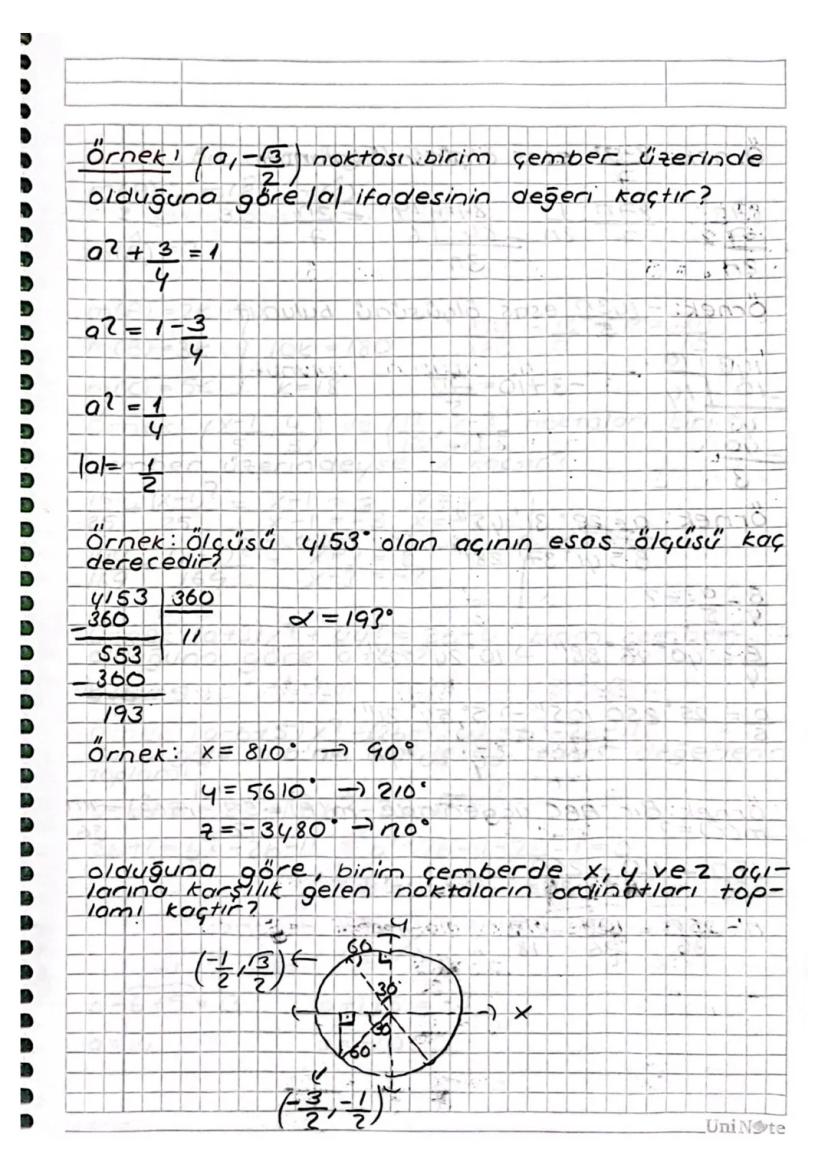 Örnek: (a, -√3/2) noktası birim çember üzerinde
olduğuna göre |a| ifadesinin değeri kaçtır?
a² + 3/4 = 1
a² = 1 - 3/4
a² = 1/4
|a| = 1/2
Örnek: ölçüsü 4153° olan açının esas ölçüsü kaç
derecedir?
4153 | 360
-360 | 11
553
-360
193
α = 193°
Örnek: x = 810° → 90°
y = 5610° → 210°
z = -3480° → 120°
olduğuna göre, birim çemberde x, y ve z açı-
larına karşılık gelen noktaların ordinatları top-
lamı kaçtır?
y
(-1/2, √3/2) ←
60
30
x
30
60
(-3/2, -1/2)
UniNote